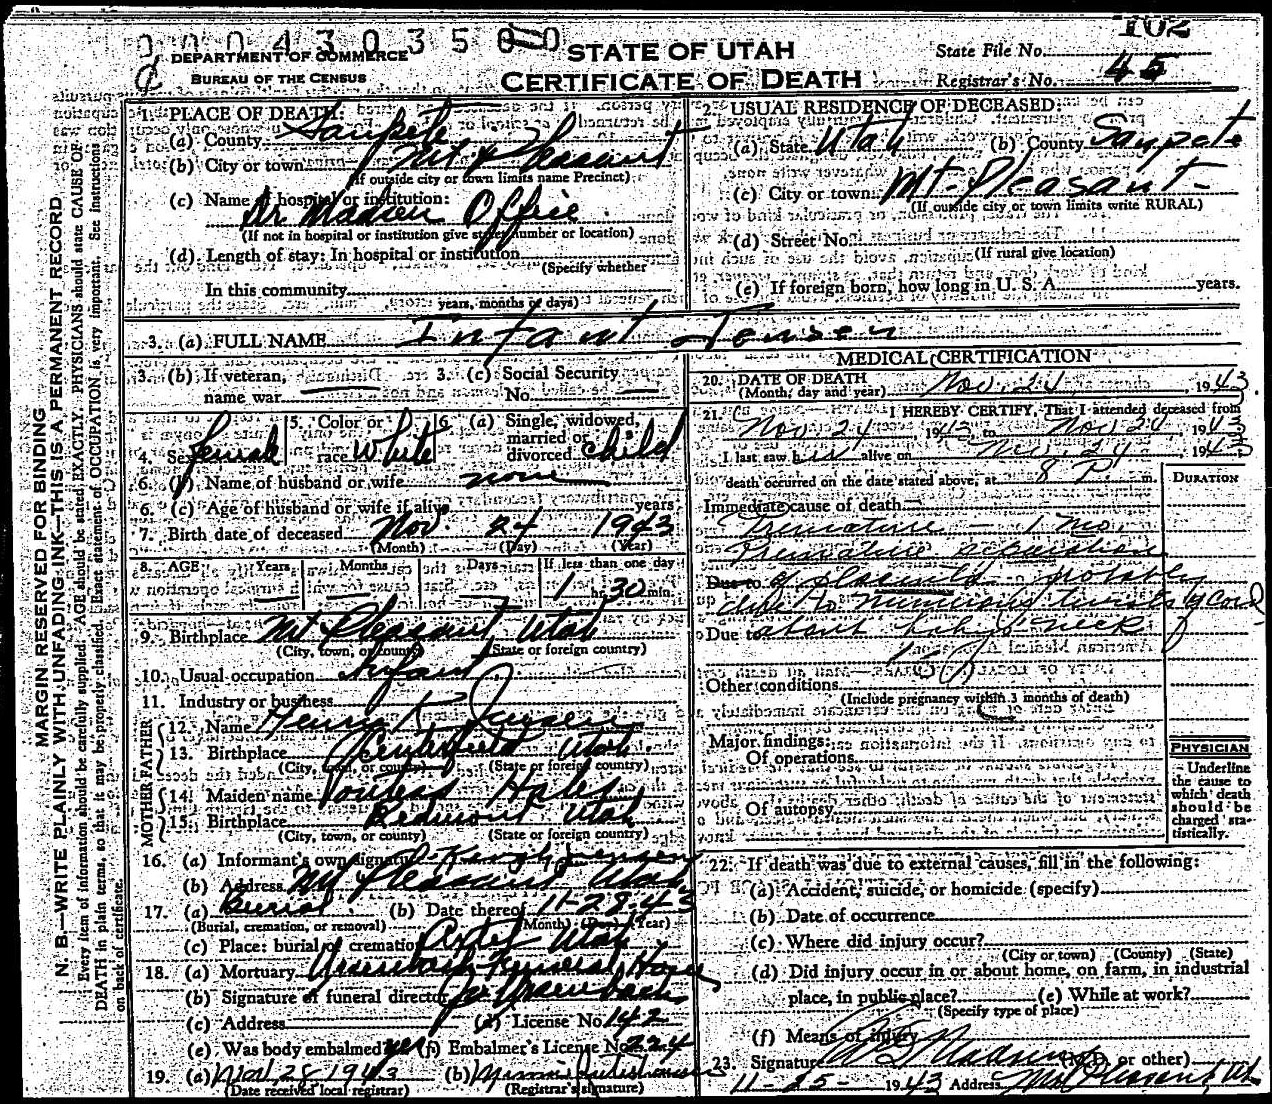 0004303500
DEPARTMENT OF COMMERCE
BUREAU OF THE CENSUS
STATE OF UTAH
CERTIFICATE OF DEATH
State File No. 102
Registrar's No. 45
MARGIN RESERVED FOR BINDING
N. B.—WRITE PLAINLY WITH UNFADING INK—THIS IS A PERMANENT RECORD
Every item of information should be carefully supplied. AGE should be stated EXACTLY. PHYSICIANS should state CAUSE OF
DEATH in plain terms, so that it may be properly classified. Exact statement of OCCUPATION is very important. See instructions
on back of certificate.
1. PLACE OF DEATH:
(a) County Sanpete
(b) City or town Mt Pleasant
(If outside city or town limits name Precinct)
(c) Name of hospital or institution:
Dr Madsen Office
(If not in hospital or institution give street number or location)
(d) Length of stay: In hospital or institution
(Specify whether
In this community
years, months or days)
2. USUAL RESIDENCE OF DECEASED:
(a) State Utah (b) County Sanpete
(c) City or town Mt-Pleasant
(If outside city or town limits write RURAL)
(d) Street No.
(If rural give location)
(e) If foreign born, how long in U. S. A. years.
3. (a) FULL NAME Infant Jensen
3. (b) If veteran, name war
3. (c) Social Security No.
4. Sex Female
5. Color or race White
6. (a) Single, widowed, married or divorced child
6. (b) Name of husband or wife none
6. (c) Age of husband or wife if alive years
7. Birth date of deceased Nov 24 1943
(Month) (Day) (Year)
8. AGE Years Months Days If less than one day
1 hr. 30 min.
9. Birthplace Mt Pleasant, Utah
(City, town, or county) (State or foreign country)
10. Usual occupation Infant
11. Industry or business
FATHER
12. Name Henry K Jensen
13. Birthplace Centerfield Utah
(City, town, or county) (State or foreign country)
MOTHER
14. Maiden name Hales
15. Birthplace Redmond Utah
(City, town, or county) (State or foreign country)
16. (a) Informant's own signature Jensen
(b) Address Mt Pleasant Utah
17. (a) Burial (b) Date thereof 11-28-43
(Burial, cremation, or removal) (Month) (Day) (Year)
(c) Place: burial or cremation Axtell Utah
18. (a) Mortuary Ursenbach Funeral Home
(b) Signature of funeral director Ursenbach
(c) Address (d) License No. 142
(e) Was body embalmed yes (f) Embalmer's License No. 224
19. (a) Nov 28 1943 (b)
(Date received local registrar) (Registrar's signature)
MEDICAL CERTIFICATION
20. DATE OF DEATH
(Month, day and year) Nov. 24, 1943
21. I HEREBY CERTIFY, That I attended deceased from
Nov 24 1943 to Nov 24 1943
I last saw her alive on Nov. 24 1943
death occurred on the date stated above, at 8 P. m.
DURATION
Immediate cause of death
Premature - 1 mo.
Premature separation
Due to of placenta probably
due to numerous twists of cord
Due to about baby's neck
Other conditions
(Include pregnancy within 3 months of death)
Major findings:
Of operations
Of autopsy
PHYSICIAN
Underline
the cause to
which death
should be
charged sta-
tistically.
22. If death was due to external causes, fill in the following:
(a) Accident, suicide, or homicide (specify)
(b) Date of occurrence
(c) Where did injury occur?
(City or town) (County) (State)
(d) Did injury occur in or about home, on farm, in industrial
place, in public place? (e) While at work?
(Specify type of place)
(f) Means of injury
23. Signature Madsen (M.D. or other)
11-25- 1943 Address Mt Pleasant, Ut